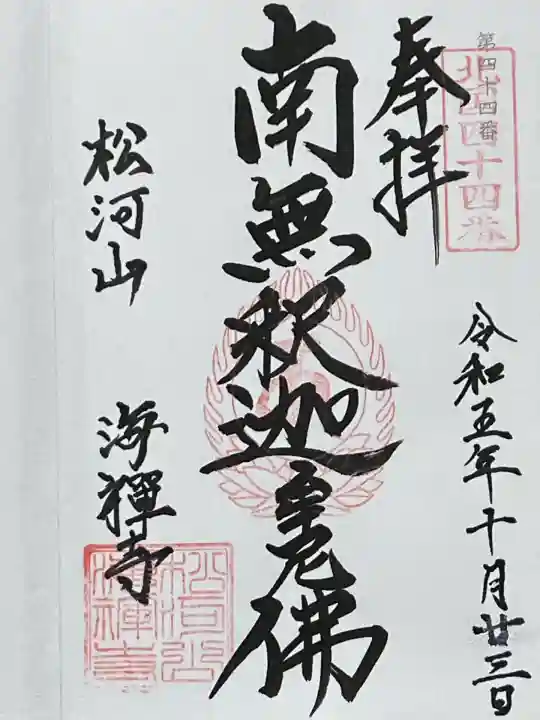 第四十四番
北西四十四番
奉拝
令和五年十月廿三日
南無釈迦牟尼佛
松河山
海禪寺
松河山
海禪寺